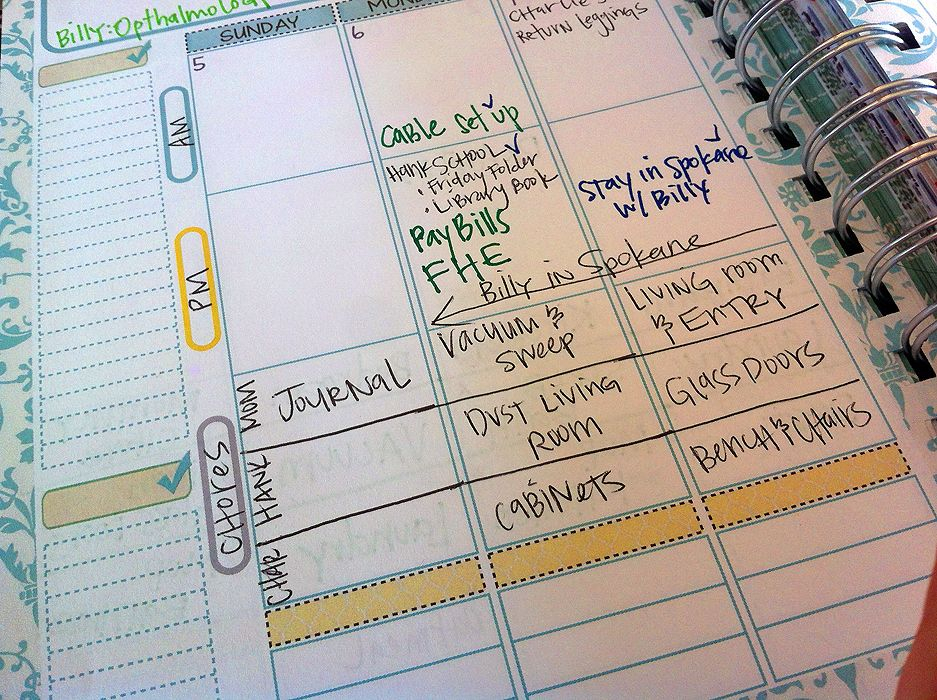 Billy: Opthalmology
SUNDAY
5
AM
PM
6
Cable set up
Hank School
• Friday Folder
• Library Book
Pay Bills
FHE
Return leggings
Stay in Spokane
w/ Billy
Billy in Spokane
CHORES
MOM
JOURNAL
Vacuum &
Sweep
LIVING room
& ENTRY
HANK
Dust Living
Room
Glass Doors
CHAR
CABINETS
Bench & CHairs